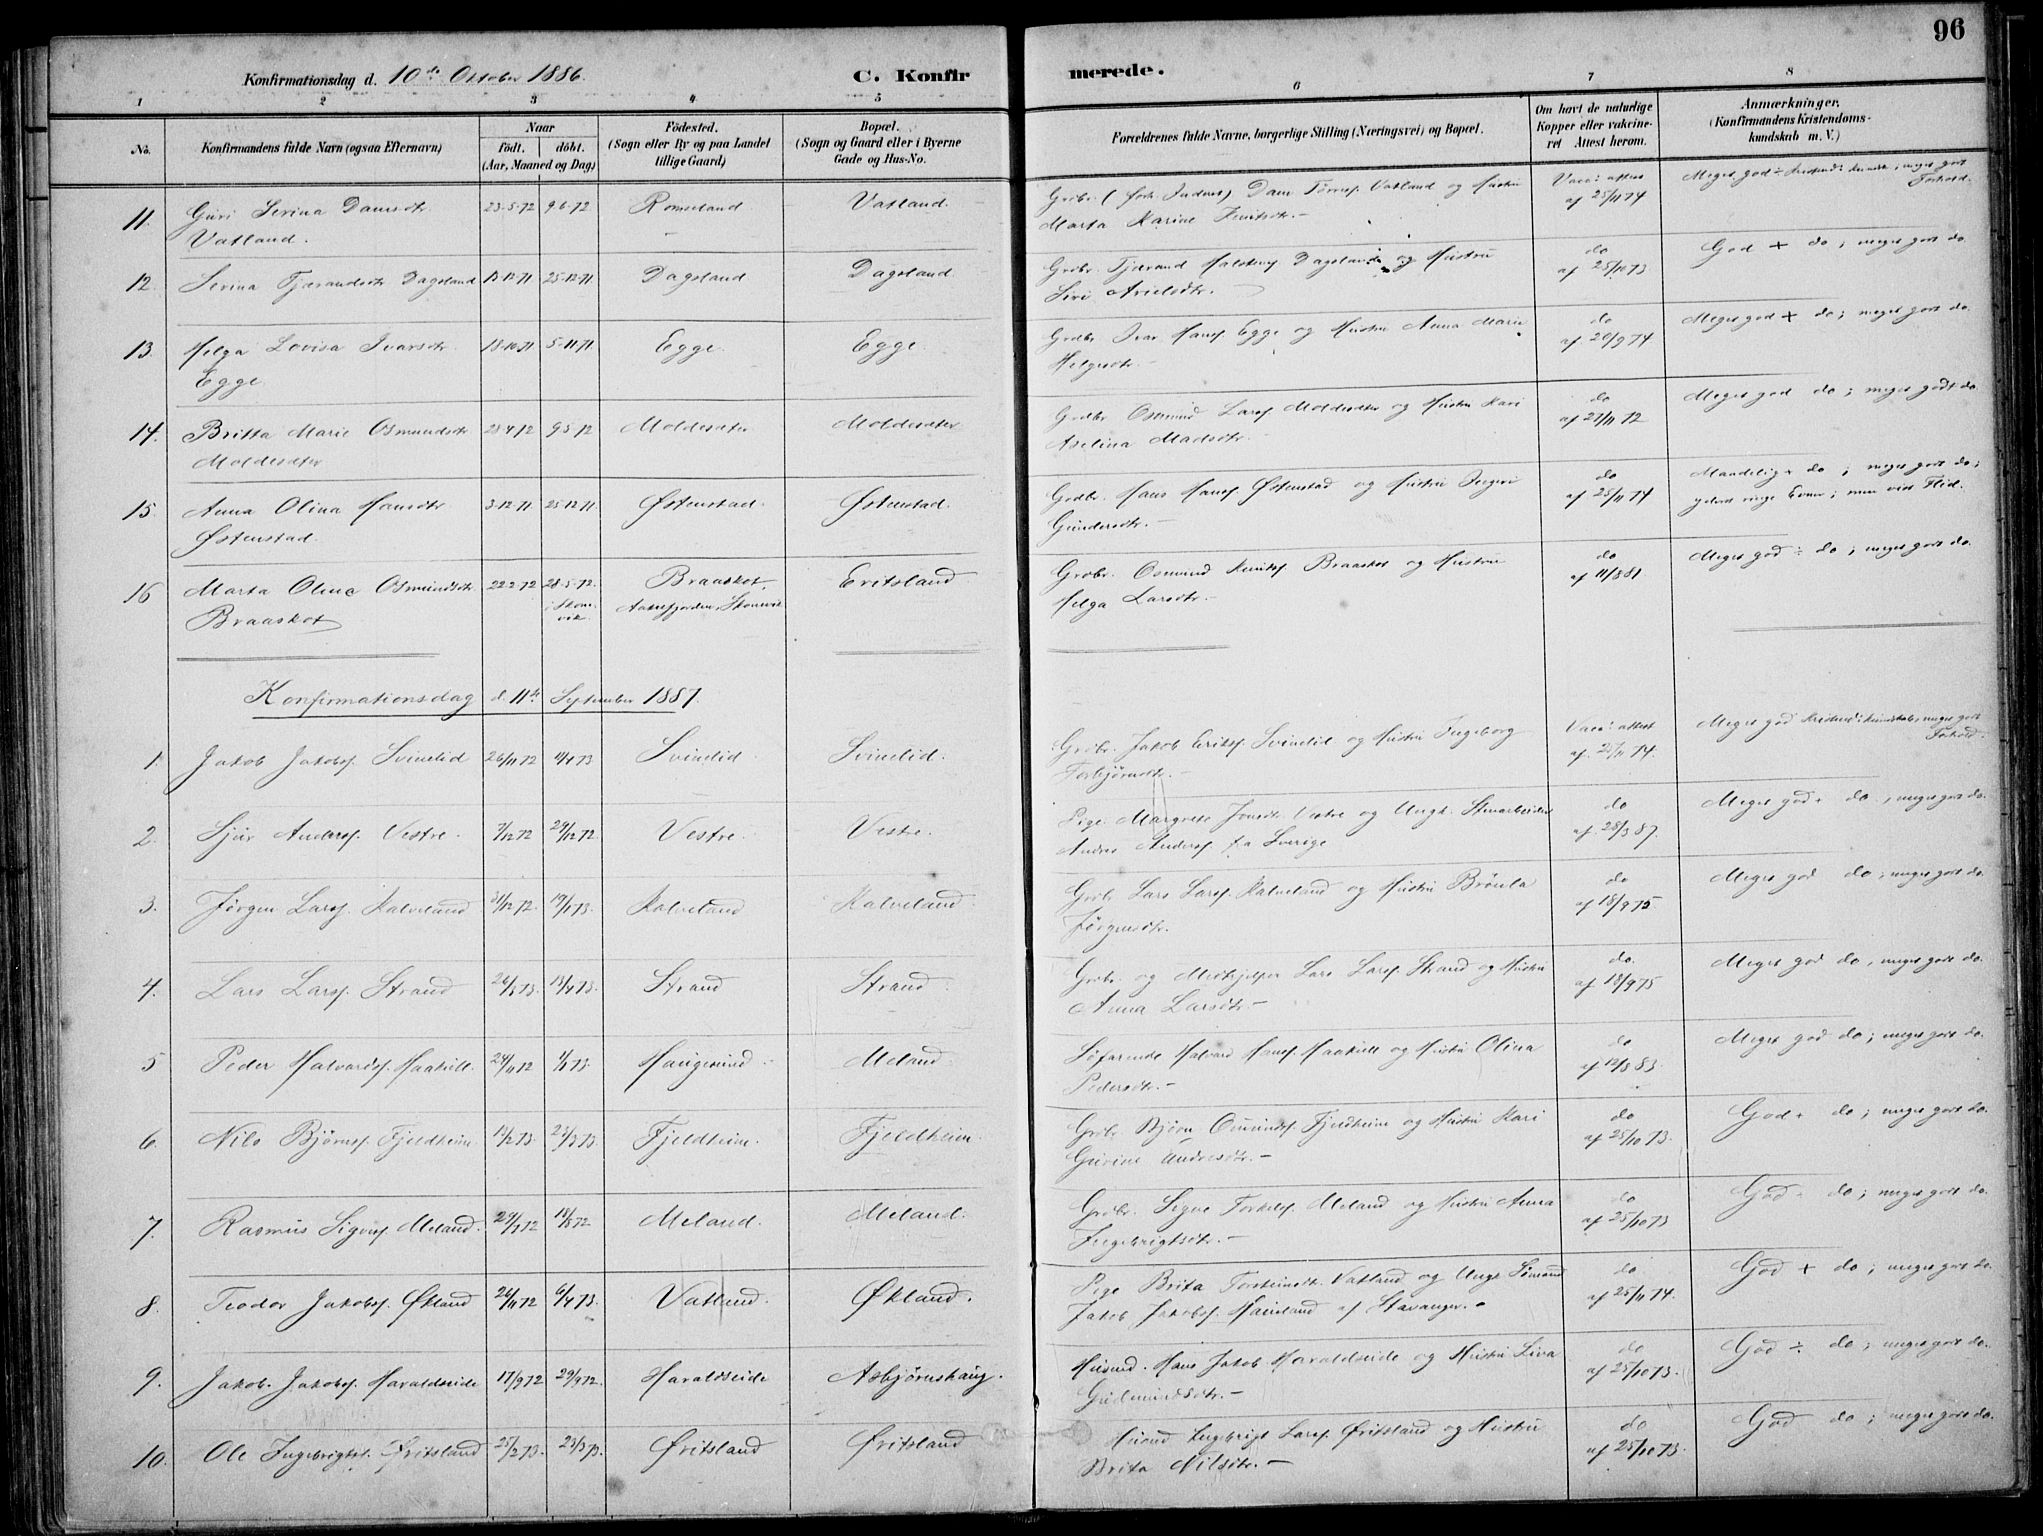 96
Konfirmationsdag d. 10de October 1886.
C. Konfirmerede.
1 2 3 4 5 6 7 8
No.
Konfirmandens fulde Navn (ogsaa Efternavn)
Naar
født. døbt.
(Aar, Maaned og Dag)
Fødested.
(Sogn eller By og paa Landet
tillige Gaard)
Bopæl.
(Sogn og Gaard eller i Byerne
Gade og Hus-No.
Forældrenes fulde Navne, borgerlige Stilling (Næringsvei) og Bopæl.
Om havt de naturlige
Kopper eller vakcine-
ret Attest herom.
Anmærkninger,
(Konfirmandens Kristendoms-
kundskab m. V.)
11. Guri Serina Damsdtr. 23-5-72 9-6-72 Romseland Vatland. Grdbr. Dam Vatland og Hustru Vacc: attest Meget god ÷ meget godt
Vatland. Marta Karine af 25/11 74 Forhold.
12. Serina Tjærandsdtr Dagsland 13-12-71 25-12-71 Dagsland Dagsland. Grdbr. Tjærand Dagsland og Hustru do God + do; meget godt do.
Siri af 25/10 73.
13. Helga Lovisa Ivarsdtr. 18-10-71 5-11-71 Egge. Egge. Grdbr. Ivar Hansf Egge og Hustru Anna Marie do Meget god + do; meget godt do.
Egge. Helgesdtr. af 20/9 74
14. Britta Marie Osmundsdtr 28-4-72 9-5-72 Moldesæter Moldesæter Grdbr. Osmund Larsf Moldesæter og Hustru Kari do Meget god do; meget godt do.
Moldesæter Aselina Madsdtr. af 27/11 72
15. Anna Olina Hansdtr. 3-12-71 25-12-71 Østenstad. Østenstad. Grdbr. Hans Hansf Østenstad og Hustru Ingeri do Maadelig + do; meget godt do;
Østenstad. Gundersdtr. af 25/11 74 ringe Evner; men vist Flid.
16 Marta Oline Osmundsdtr. 22-2-72 28-5-72. Braaskot, Eritsland. Grdbr. Osmund Knutsf Braaskot og Hustru do Meget god ÷ do; meget godt do.
Braaskot i Skonevik Aakrefjorden, Skonevik Helga Larsdtr. af 11/8 81
Konfirmationsdag d. 11te September 1887.
1. Jakob Jakobsf. Svinelid 26/11 72 14/4 73 Svinelid Svinelid. Grdbr. Jakob Eriksf. Svinelid og Hustru Ingeborg Vacc: attest Meget god Kristend: kundskab, meget godt
Torbjørnsdtr. af. 25/11 74. Forhold.
2. Sjur Andersf. Vestre. 7/12 72 29/12 72. Vestre. Vestre. Pige Margrete Jonsdtr. Vestre og Ungk. Stenarbeider do Meget god + do, meget godt do.
Andrs Andersf. fra Sverige af 28/3 87.
3. Jørgen Larsf. Kalveland 31/12 72. 19/1 73. Kalveland Kalveland. Grdbr. Lars Larsf. Kalveland og Hustru Brønla do Meget god do; meget godt do.
Jørgensdtr. af 18/9 75.
4. Lars Larsf. Strand 13/4 73. Strand Strand. Grdbr. og Medhjelper Lars Larsf Strand og Hustru do. Meget god do, meget godt do.
Anna Larsdtr. af 18/9 75
5 Peder Halvardsf. Haakull. 24/11 72 1/1 73. Haugesund Meland. Søfarende Halvard Hansf. Haakull og Hustru Olina do Meget god do; meget godt do.
Pedersdtr. af 12/8 83.
6. Nils Bjørnsf. Fjeldheim 13/2 73. 23/3 73. Fjeldheim. Fjeldheim. Grdbr. Bjørn Omundsf. Fjeldheim og Hustru Kari do God + do; meget godt do.
Gurine Andersdtr. af 25/10 73.
7. Rasmus Sigvesf. Meland. 29/7 72 18/8 72 Meland. Meland. Grdbr. Sigve Torkelsf. Meland og Hustru Anna do God - do; meget godt do.
Ingebrigtsdtr. af 25/10 73
8. Teodor Jakobsf. Økland 24/11 72 6/4 73. Vatland. Økland. Pige Brita Torsteinsdtr. Vatland og Ungk. Sømand do God + do; meget godt do.
Jakob Jakobsf. af Stavanger. af 25/11 74.
9. Jakob Jakobsf. Haraldseide 17/9 72 29/9 72. Haraldseide Asbjørnshaug. Husmd. Hans Jakob Haraldseide og Hustru Siva do God ÷ do; meget godt do.
Gudmundsdtr. af 25/10 73.
10. Ole Ingebrigtsf. Øritsland 25/2 73. 23/3 73. Øritsland Øritsland Husmd Ingebrigt Larsf. Øritsland og Hustru do God do; meget godt do.
Brita Nilsdtr. af 25/10 73.